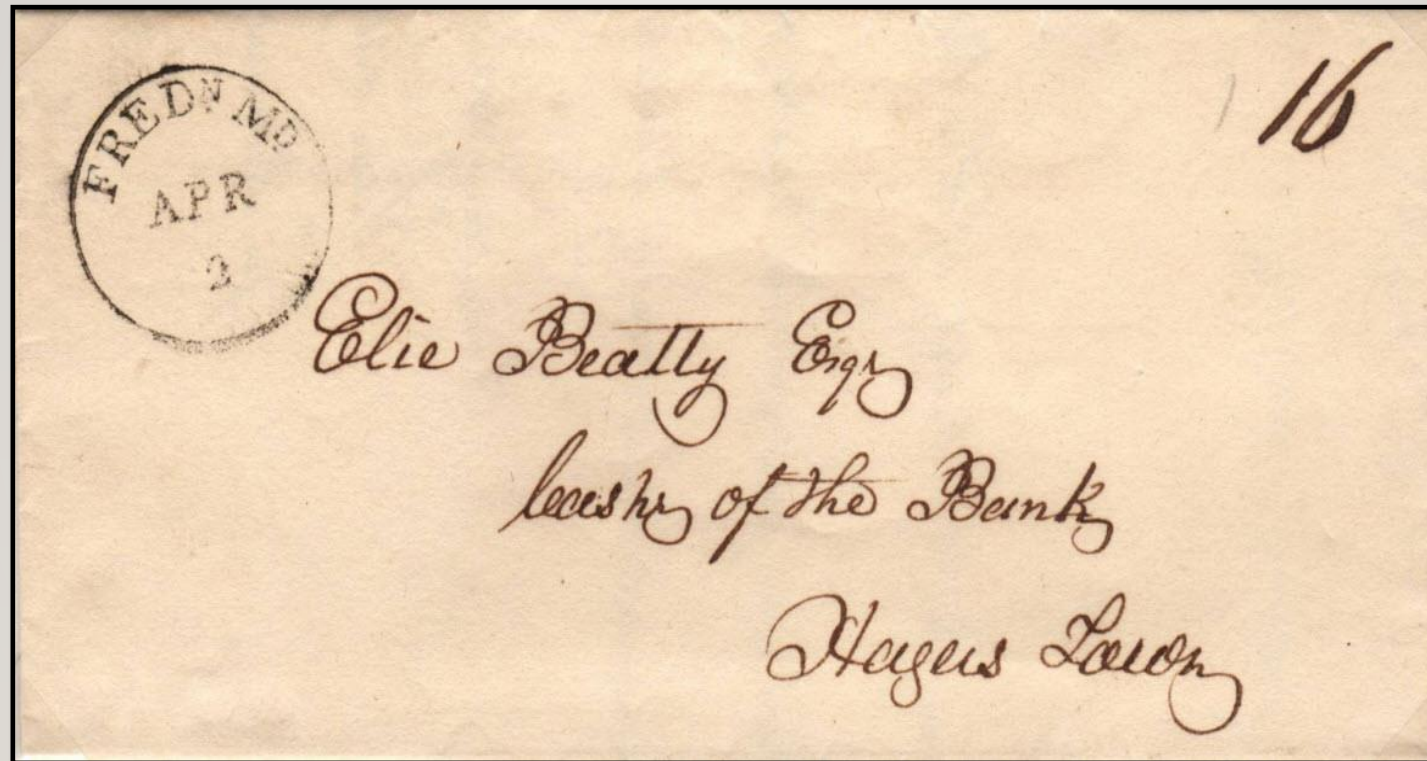 FREDN MD
APR
2
16
Elie Beatty Esqr
Cashr of the Bank
Hagers Town